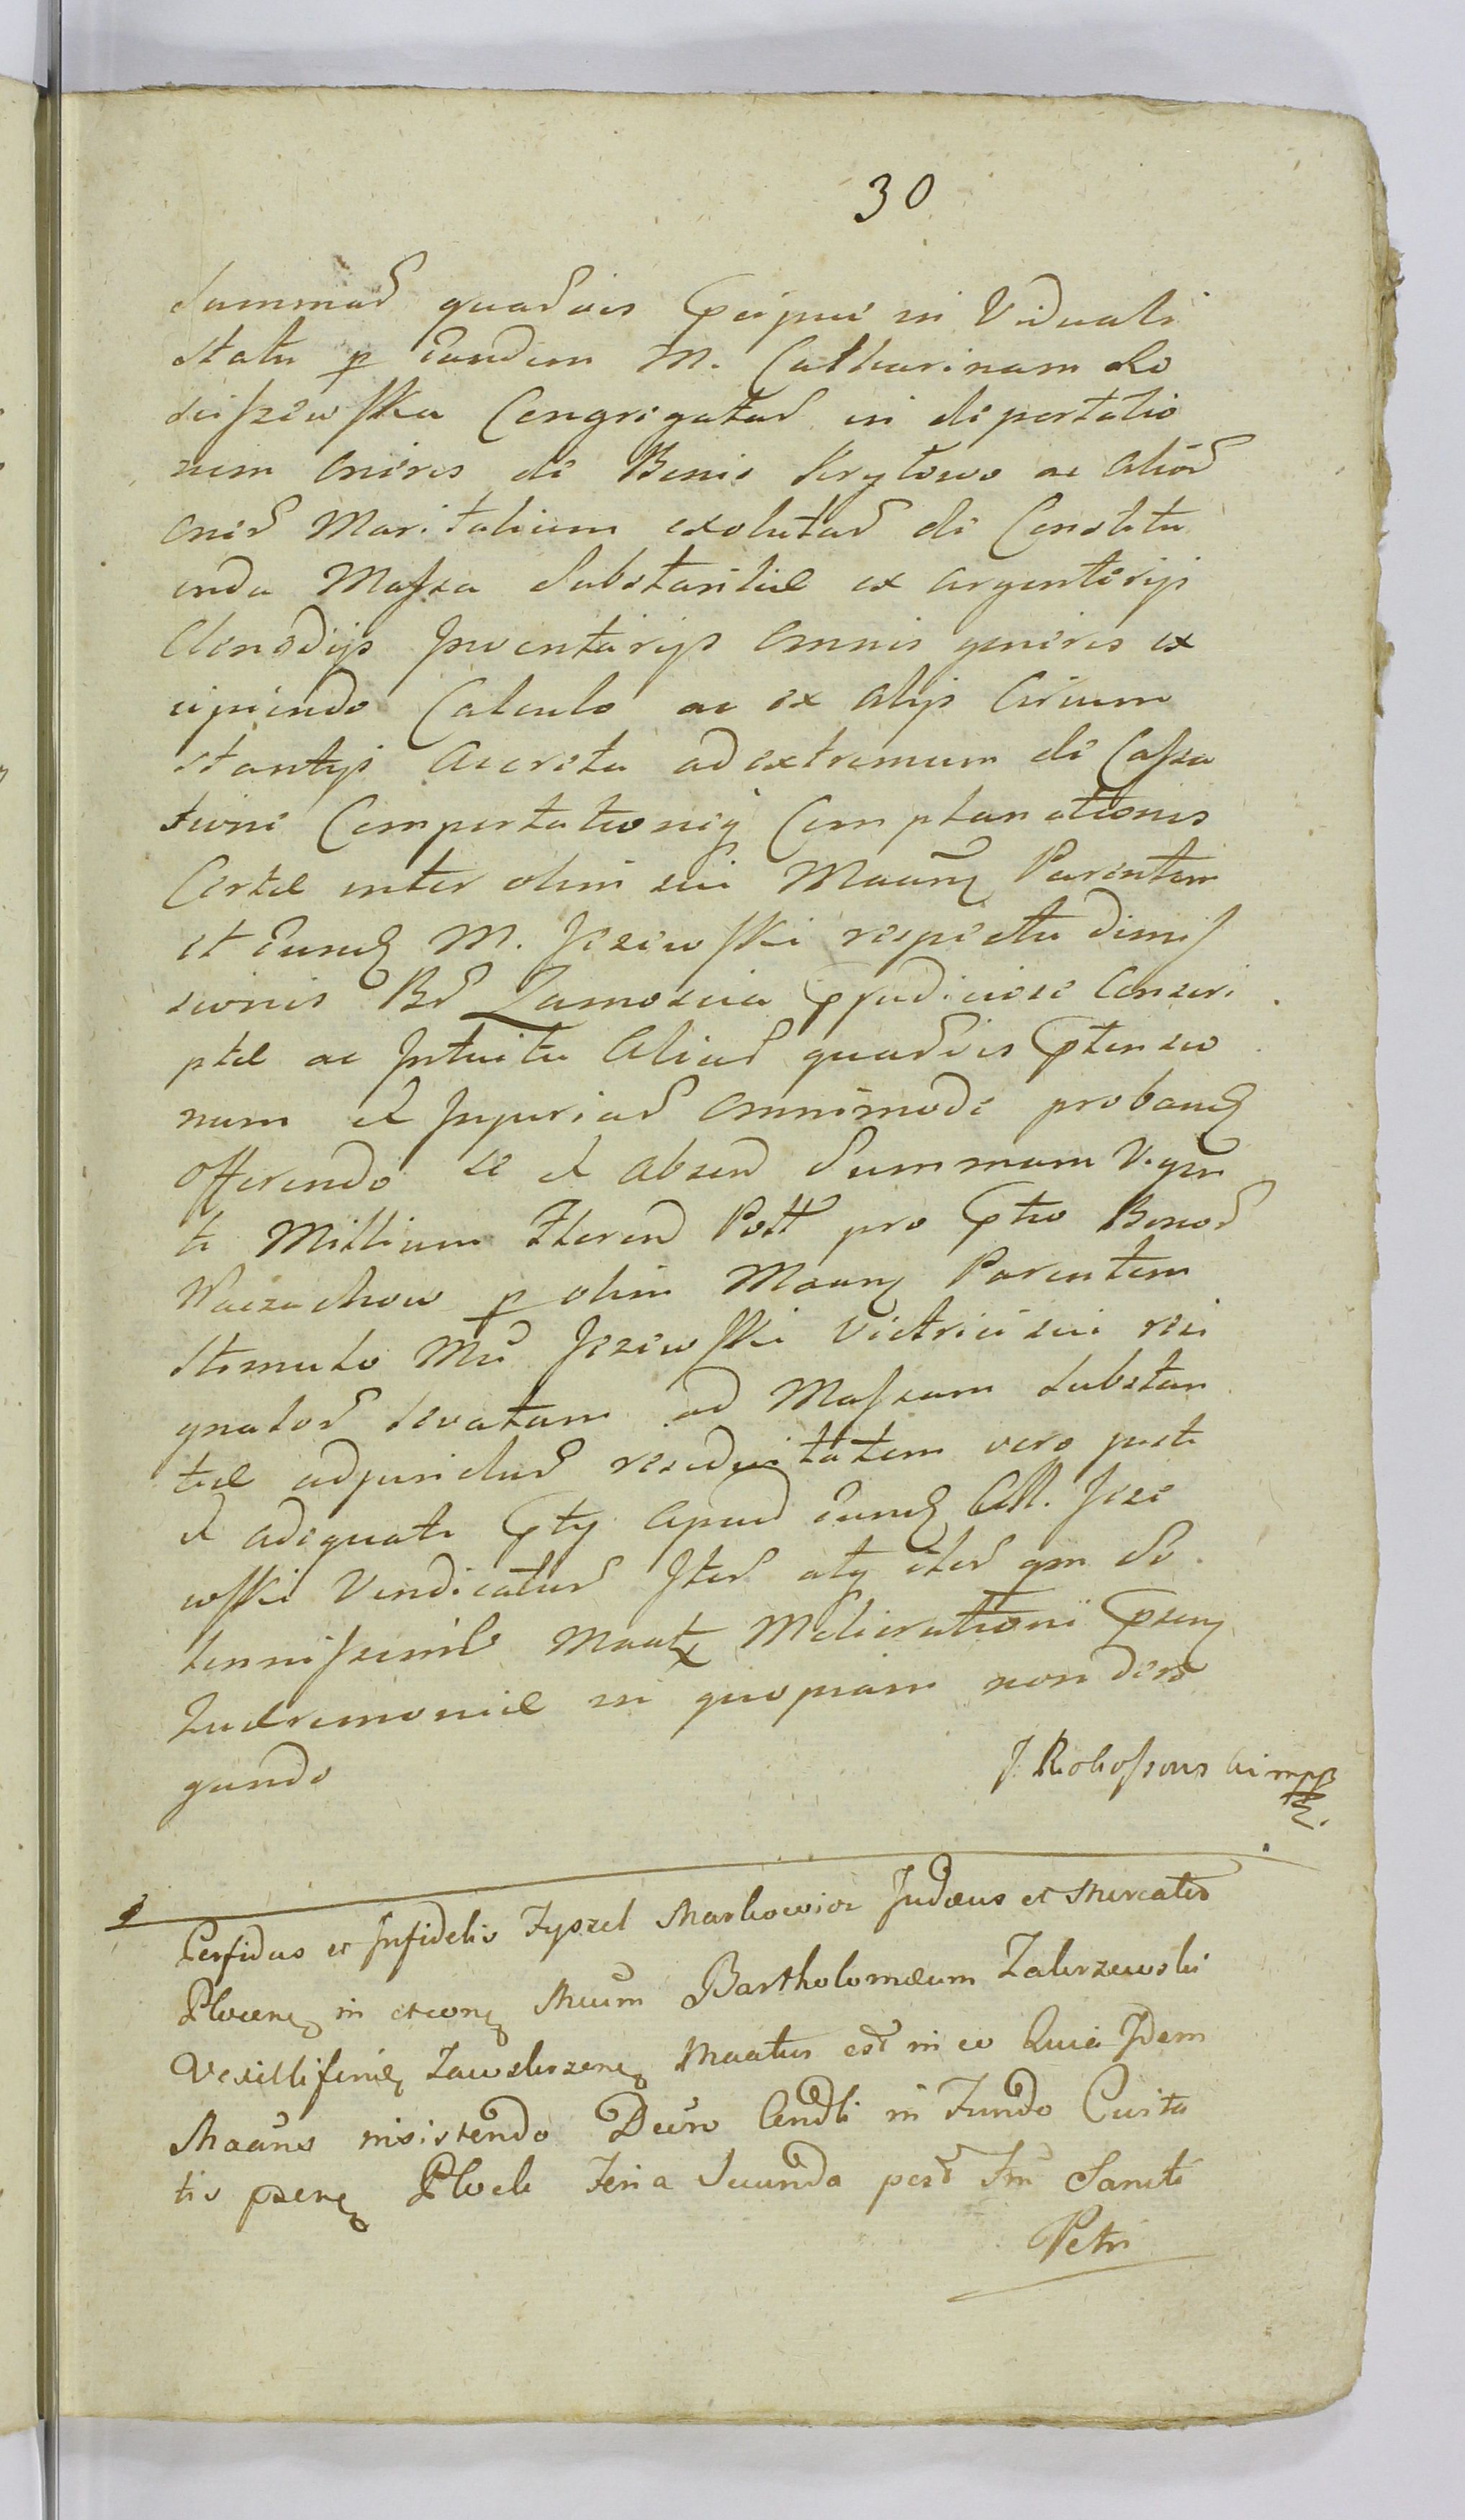 30
Summaʀ quaſvis pcipue in Viduali
Statu p Eandem M. Catharinam Ko
sciſzewſka Congregataʀ in deportatio
nem oneris de Bonis Krytowo ac alioʀ
oneʀ Maritalium exolutaʀ de Constitu
enda Maſsa Substantiæ ex argenterijs
Clenodijs Inventarijs omnis generis ex
cipiendo Calculo ac ex alijs Circum
stantijs accreta ad extremum de Caſsa
tione Comportationeq Complanationis
Certæ inter olim sui Maanᵹ Parentem
et Eundᵹ M. Jezewſki respectu dimiſ
sionis Bʀ Zamoscia pjudiciose Conscri
ptæ ac Intuitu aliaʀ quaſvis ptensio
num et Injuriaʀ omnimode probandᵹ
offerendo se et absend Summam Vigin
ti Millium Floreʀ Poll pro ptio Bonoʀ
Waczuchow p olim Maanᵹ Parentem
Stimulo Mci Jezewſki Victrici sui resi
gnatoʀ levatam ad Maſsam Substan
tiæ adjuncturʀ residuitatem vero juste
et adequate ptij apud Eundᵹ M. Jeze
wſki Vindicaturʀ Iteʀ atq iteʀ qm So
lenniſsime Maatᵹ Meliorationi psenᵹ
Quærimoniæ in quopiam non dero
gando
J. Rokoſsowski mpp
Perfidus et Infidelis Fyszel Markowicz Judæus et Mercator
Plocenᵹ in et conᵹ Mcum Bartholomæum Zakrzewski
Vexilliferidᵹ Zawskrzenᵹ Maatus est in eo Quia Idem
Maanus insistendo Decro Condli in Fundo Civita
tis psenᵹ Plock Feria Secunda post Fm Sancti
Petri